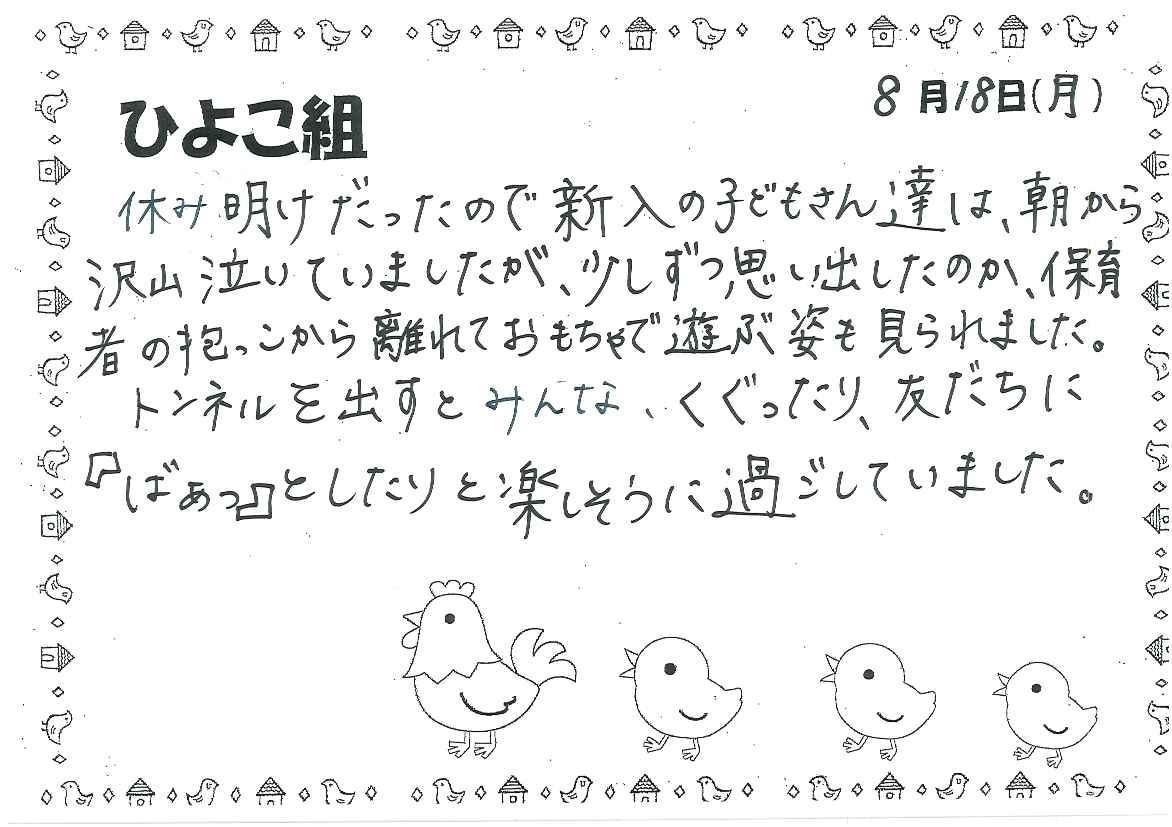 8月18日(月)
ひよこ組
休み明けだったので新入の子どもさん達は、朝から
沢山泣いていましたが、少しずつ思い出したのか、保育
者の抱っこから離れておもちゃで遊ぶ姿も見られました。
トンネルを出すとみんな、くぐったり、友だちに
『ばぁっ』としたりと楽しそうに過ごしていました。